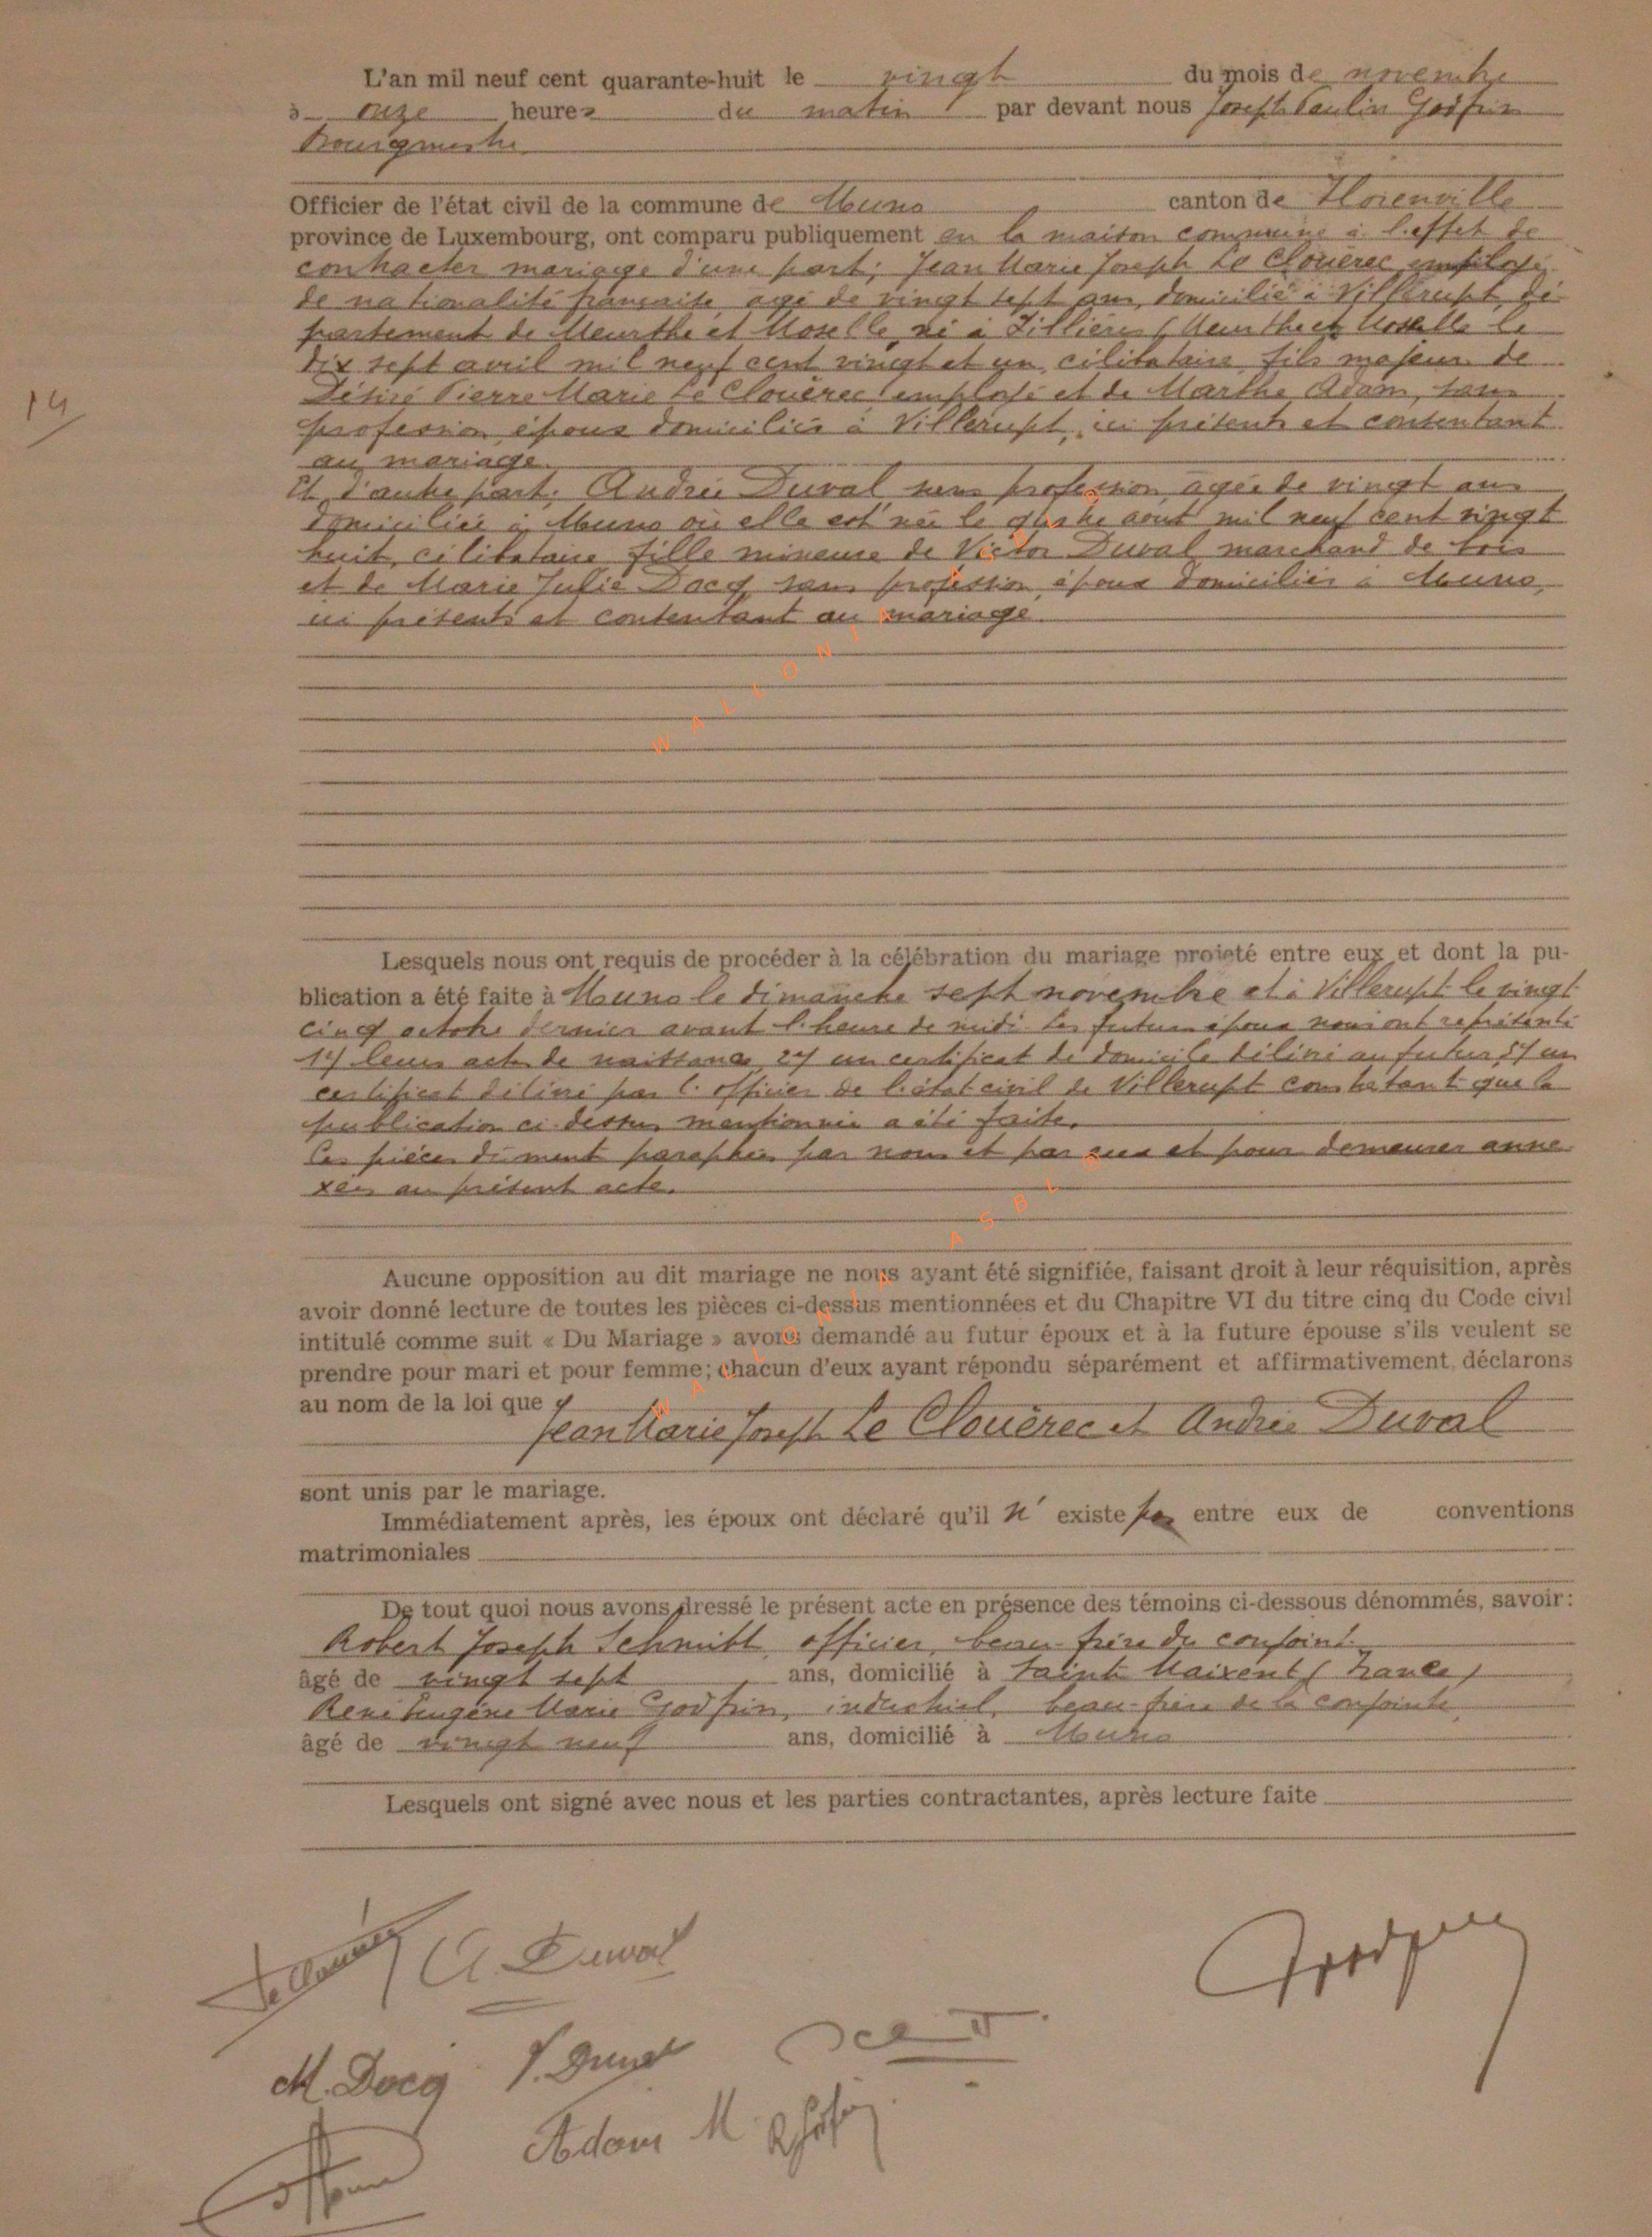 L'an mil neuf cent quarante-huit le vingt du mois de novembre
à onze heures du matin par devant nous Joseph Paulin Godfrin
Bourgmestre
Officier de l'état civil de la commune de Muno canton de Florenville
province de Luxembourg, ont comparu publiquement en la maison commune à l'effet de
contracter mariage d'une part; Jean Marie Joseph Le Clouërec employé
de nationalité française, agé de vingt sept ans, domicilié à Villerupt, dé
partement de Meurthe et Moselle, né à Fillières (Meurthe et Moselle le
dix sept avril mil neuf cent vingt et un, célibataire, fils majeur de
Désiré Pierre Marie Le Clouërec employé et de Marthe Adam, sans
profession, époux domiciliés à Villerupt, ici présents et consentant
au mariage.
Et d'autre part; Andrée Duval sans profession, agée de vingt ans
domiciliée à Muno où elle est née le quatre aout mil neuf cent vingt
huit, célibataire, fille mineure de Victor Duval marchand de bois
et de Marie Julie Docq sans profession, époux domiciliés à Muno,
ici présents et consentant au mariage.
14
WALLONIA ASBL
Lesquels nous ont requis de procéder à la célébration du mariage projeté entre eux et dont la pu-
blication a été faite à Muno le dimanche sept novembre et à Villerupt le vingt
cinq octobre dernier avant l'heure de midi les futurs époux nous ont représenté
1°/ leurs actes de naissance, 2°/ un certificat de domicile délivré au futur, 3°/ un
certificat délivré par l'officier de l'état civil de Villerupt constatant que la
publication ci-dessus mentionnée a été faite.
Ces pièces dûment paraphées par nous et par eux et pour demeurer anne
xées au présent acte.
WALLONIA ASBL
Aucune opposition au dit mariage ne nous ayant été signifiée, faisant droit à leur réquisition, après
avoir donné lecture de toutes les pièces ci-dessus mentionnées et du Chapitre VI du titre cinq du Code civil
intitulé comme suit « Du Mariage » avons demandé au futur époux et à la future épouse s'ils veulent se
prendre pour mari et pour femme; chacun d'eux ayant répondu séparément et affirmativement, déclarons
au nom de la loi que
Jean Marie Joseph Le Clouërec et Andrée Duval
sont unis par le mariage.
Immédiatement après, les époux ont déclaré qu'il n' existe pas entre eux de conventions
matrimoniales
De tout quoi nous avons dressé le présent acte en présence des témoins ci-dessous dénommés, savoir:
Robert Joseph Schmitt, officier, beau-frère du conjoint.
âgé de vingt sept ans, domicilié à Saint Maixent (France)
René Eugène Marie Godfrin, industriel, beau-frère de la conjointe
âgé de vingt neuf ans, domicilié à Muno
Lesquels ont signé avec nous et les parties contractantes, après lecture faite
A. Duval
M. Docq V. Duval
Adam M.